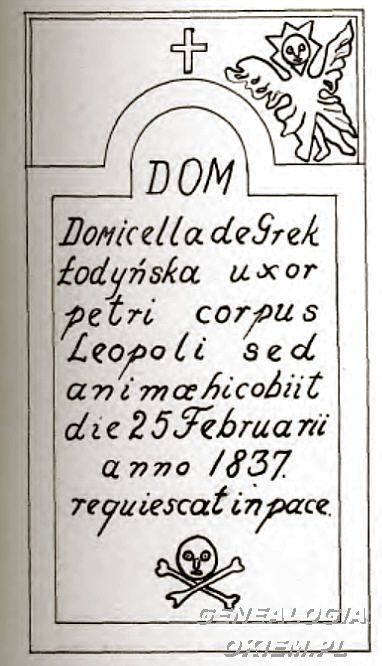 DOM
Domicella de Grek
Łodyńska uxor
petri corpus
Leopoli sed
animæ hic obiit
die 25 Februarii
anno 1837.
requiescat in pace.
GENEALOGIA
OKIEM.PL